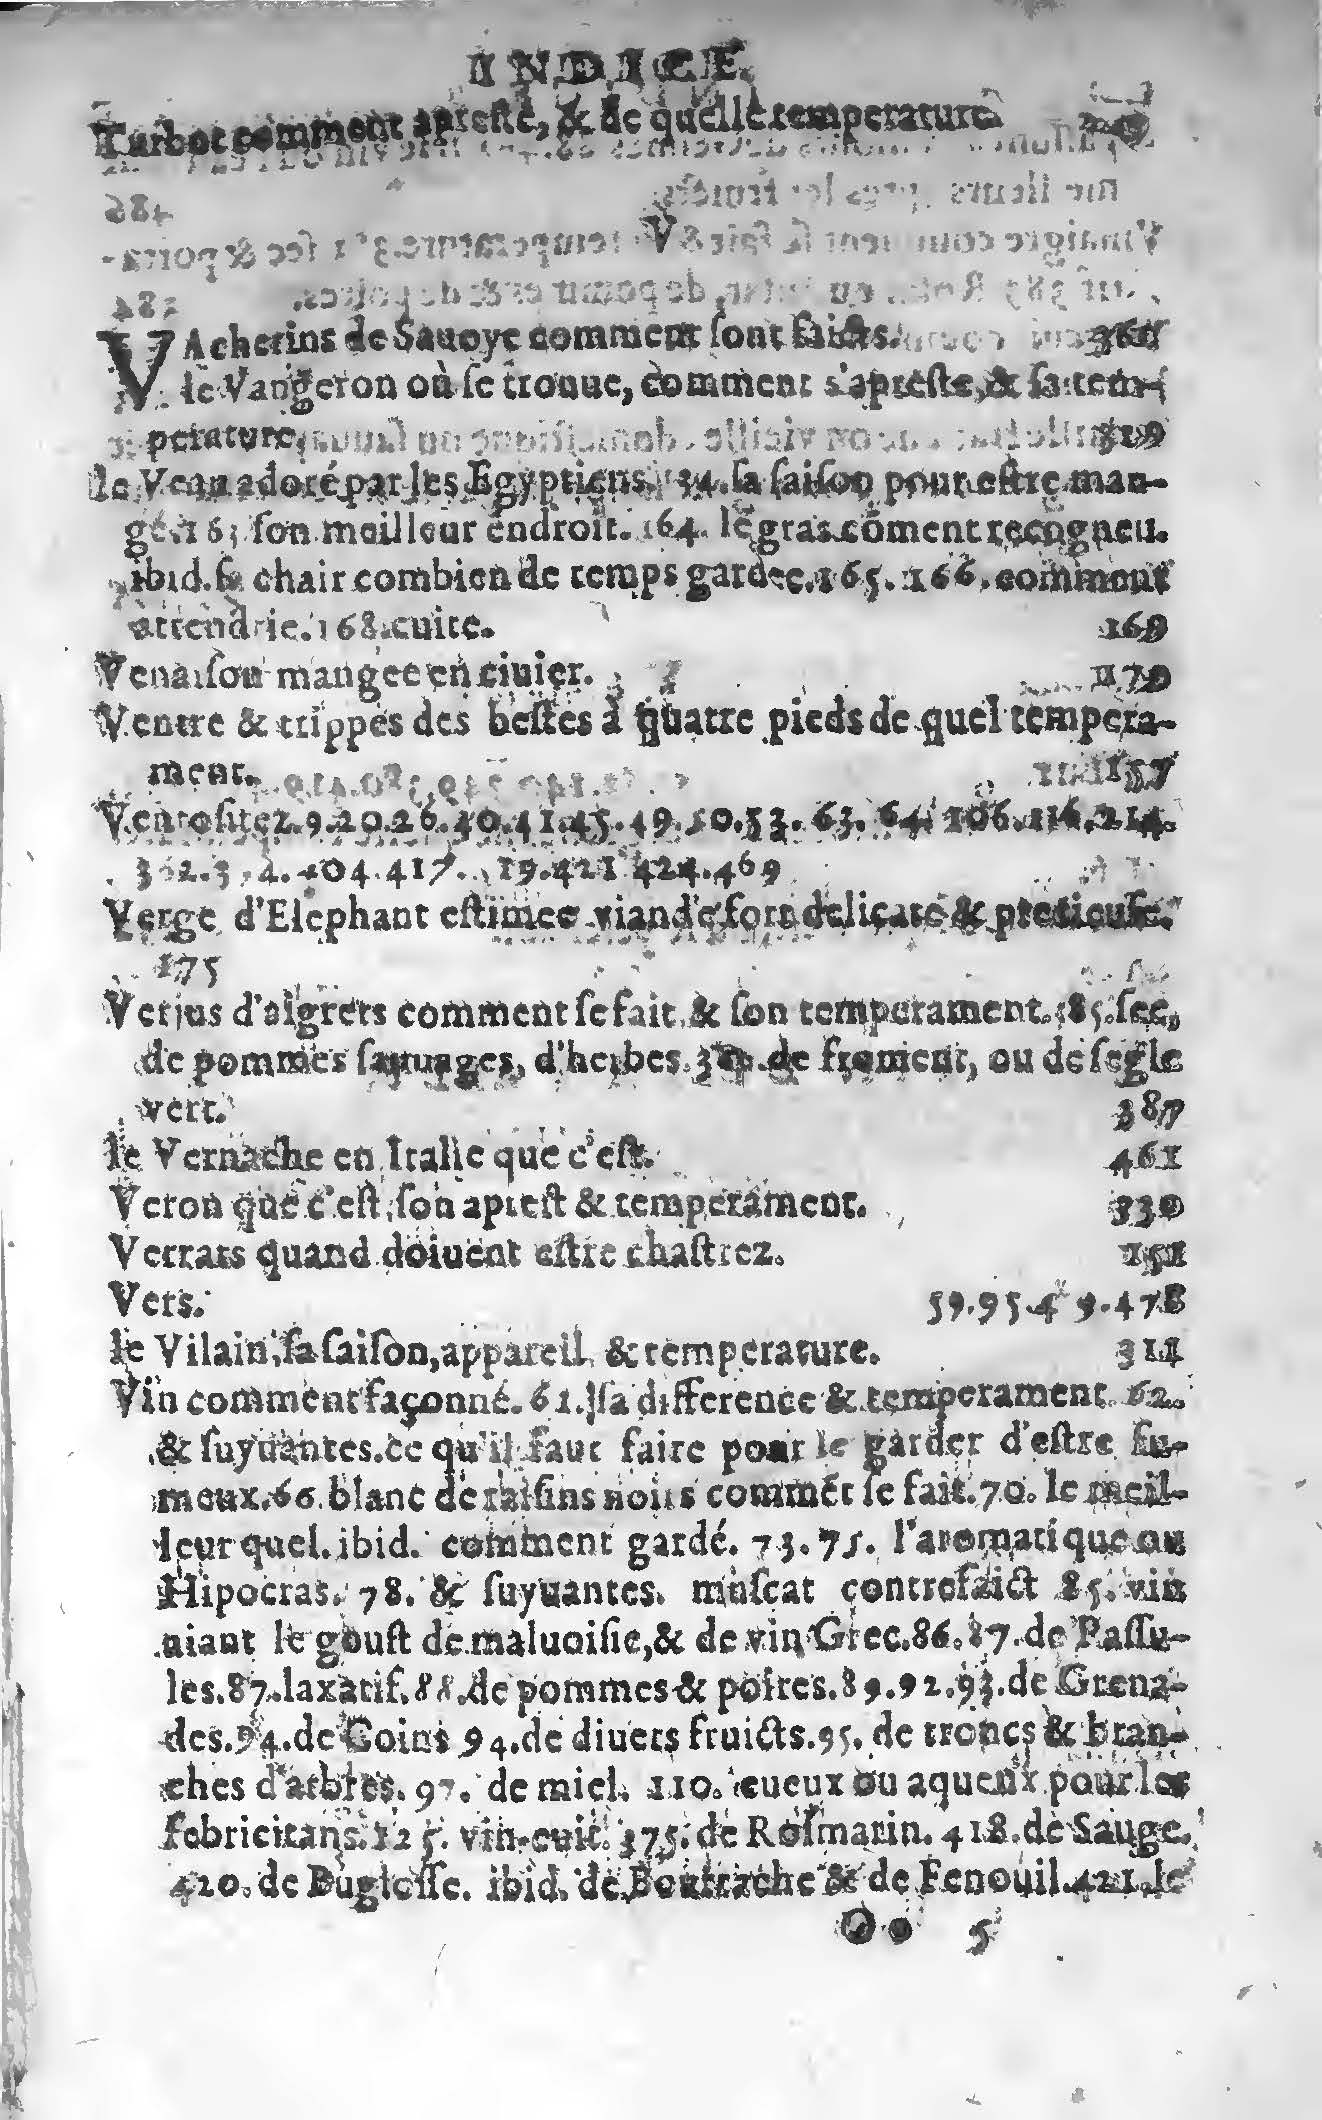 INDICE.
Turbot comment apresté, & de quelle temperature.
V
VAcherins de Sauoye comment sont faicts. 360
le Vangeron où se trouue, comment s'apreste, & sa tem-
perature. 319
le Veau adoré par les Egyptiens. 134. sa saison pour estre man-
gé. 163 son meilleur endroit. 164. le gras cõment recogneu.
ibid. sa chair combien de temps gardee. 165. 166. comment
attendrie. 168. cuite. 169
Venaison mangee en ciuier. 170
Ventre & trippes des bestes à quatre pieds de quel tempera-
ment. 157
Ventositez. 9. 20. 26. 40. 41. 45. 49. 50. 53. 63. 64. 106. 116. 214.
404. 417. 421 424. 469
Verge d'Elephant estimee viande fort delicate & precieuse.
175
Verjus d'aigrets comment se fait, & son temperament. 385. sec,
de pommes sauuages, d'herbes. de froment, ou de segle
vert. 387
le Vernache en Italie que c'est. 461
Veron que c'est, son aprest & temperament. 330
Verrats quand doiuent estre chastrez. 151
Vers. 59. 95. 4 9. 478
le Vilain, sa saison, appareil & temperature. 311
Vin comment façonné. 61. sa difference & temperament. 62.
& suyuantes. ce qu'il faut faire pour le garder d'estre fu-
meux. 66. blanc de raisins noirs commẽt se fait. 70. le meil-
leur quel. ibid. comment gardé. 73. 75. l'aromatique ou
Hipocras. 78. & suyuantes. muscat contrefaict 85. vin
aiant le goust de maluoisie, & de vin Grec. 86. 87. de Passu-
les. 87. laxatif. 88. de pommes & poires. 89. 92. 93. de Grena-
des. 94. de Coins 94. de diuers fruicts. 95. de troncs & bran-
ches d'arbres. 97. de miel. 110. cueux ou aqueux pour les
febricitans. 125. vin cuit. 375. de Rosmarin. 418. de Sauge.
420. de Buglosse. ibid. de Bourrache & de Fenouil. 421. le
Oo 5